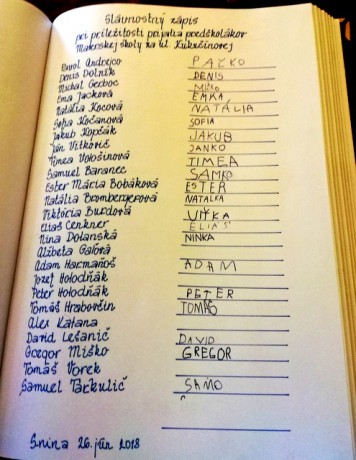 Slávnostný zápis
pri príležitosti prijatia predškolákov
Materskej školy na ul. Kukučínovej
Pavol Andrejco PAĽKO
Denis Dolník DENIS
Michal Gerboc MIŠO
Ema Jacková EMKA
Natália Kocová NATÁLIA
Sofia Kočanová SOFIA
Jakub Kopčák JAKUB
Ján Vitkovič JANKO
Timea Vološinová TIMEA
Samuel Baranec SAMKO
Ester Mária Bobáková ESTER
Natália Brombergerová NATALKA
Viktória Burdová VIKA
Eliáš Cenkner ELIÁŠ
Nina Dolanská NINKA
Alžbeta Gaľová
Adam Harmaňoš ADAM
Jozef Holodňák
Peter Holodňák PETER
Tomáš Hrabovčin TOMÁŠ
Alex Katana
David Lešanič DAVID
Gregor Miško GREGOR
Tomáš Vorek
Samuel Tarkulič SAMO
Snina 26. jún 2018